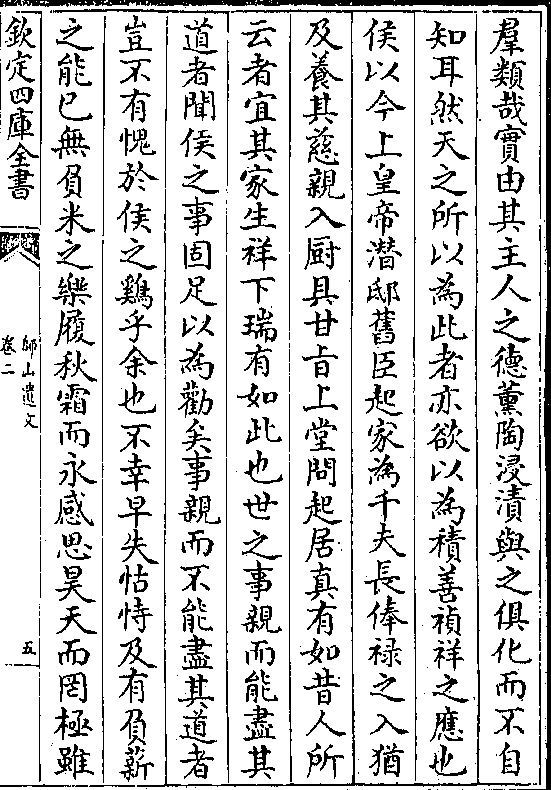 羣類哉實由其主人之德薰陶浸漬與之俱化而不自
知耳然天之所以為此者亦欲以為積善禎祥之應也
侯以今上皇帝潛邸舊臣起家為千夫長俸禄之入猶
及養其慈親入厨具甘㫖上堂問起居真有如昔人所
云者宜其家生祥下瑞有如此也世之事親而能盡其
道者聞侯之事固足以為勸矣事親而不能盡其道者
豈不有愧於侯之鷄乎余也不幸早失怙恃及有負薪
之能已無負米之樂履秋霜而永感思昊天而罔極雖
欽定四庫全書
師山遺文
卷二
五